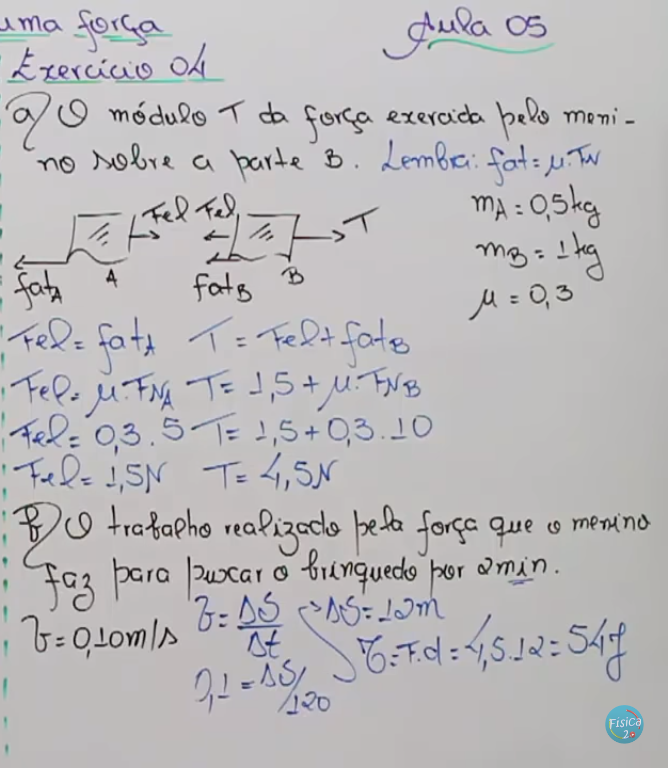 uma força
Aula 05
Exercício 04
a) O módulo T da força exercida pelo meni-
no sobre a parte B. Lembra: fat = μ.FN
Fel Fel T
fatA A fatB B
mA = 0,5kg
mB = 1kg
μ = 0,3
Fel = fatA T = Fel + fatB
Fel = μ.FNA T = 1,5 + μ.FNB
Fel = 0,3.5 T = 1,5 + 0,3.10
Fel = 1,5N T = 4,5N
b) O trabalho realizado pela força que o menino
faz para puxar o brinquedo por 2min.
v = 0,10m/s v = ΔS/Δt → ΔS = 12m
0,1 = ΔS/120 τ = F.d = 4,5.12 = 54J
FISICA
2.